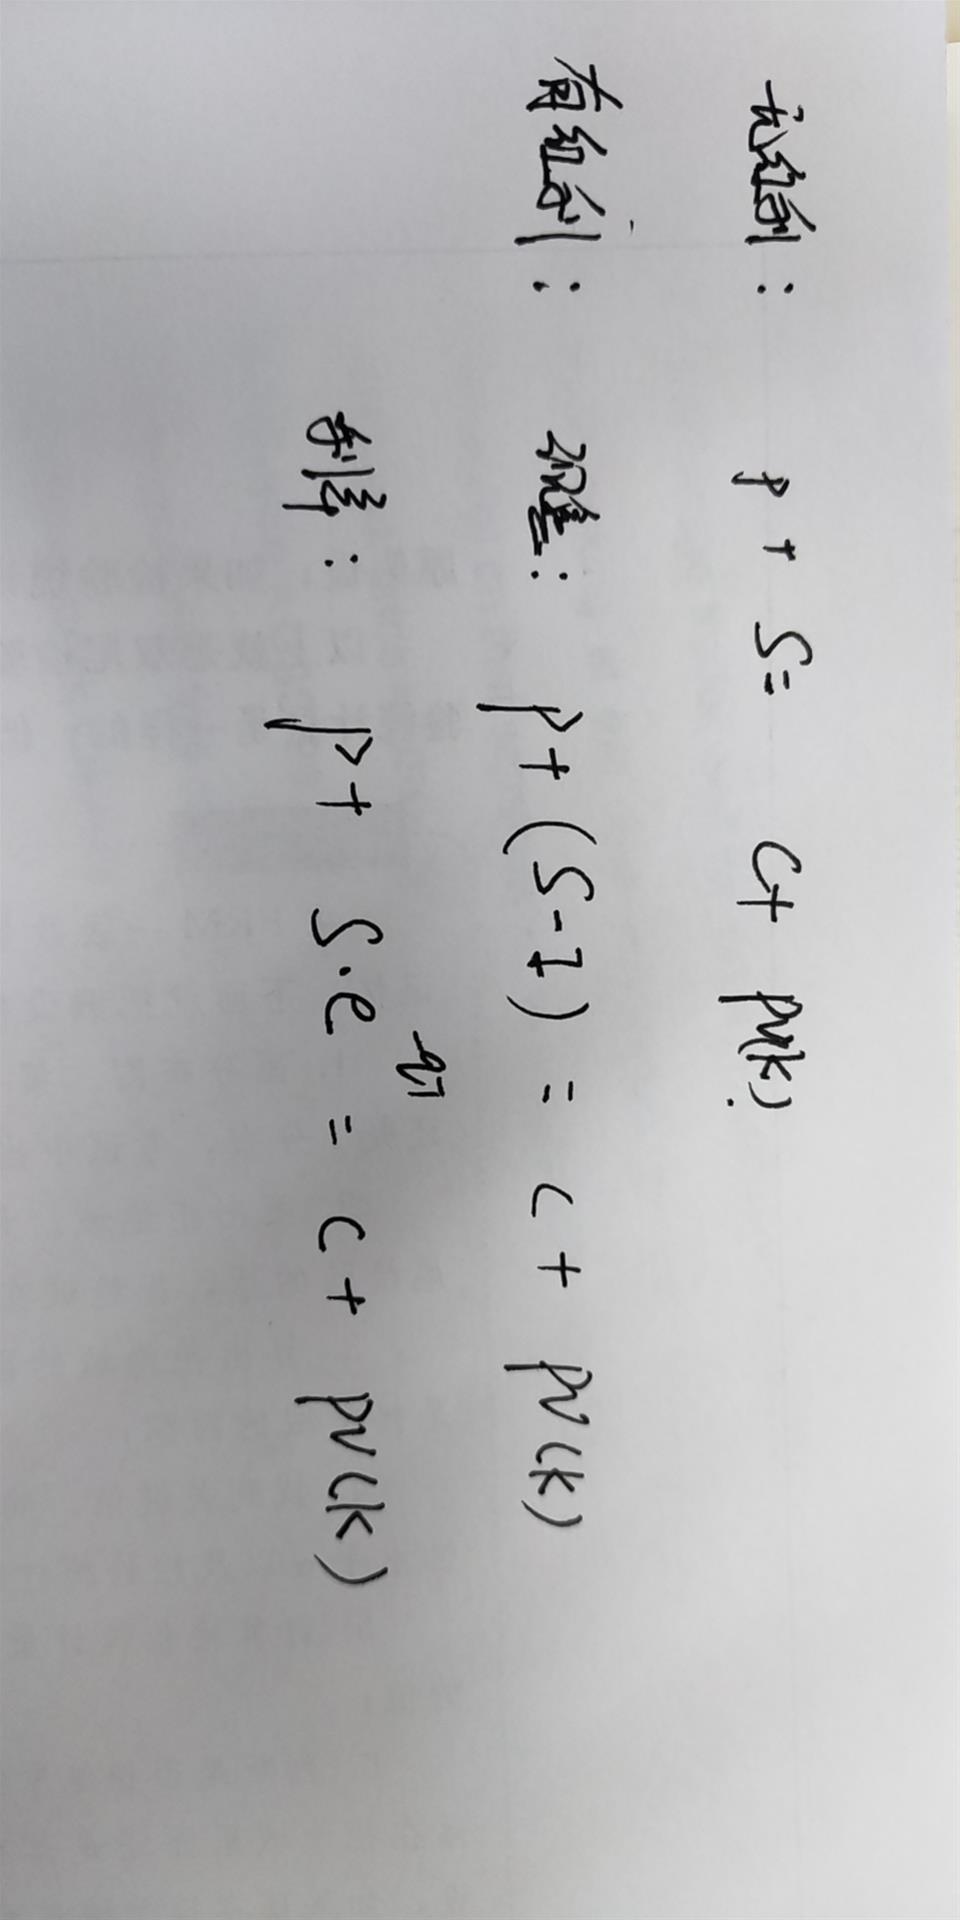 无红利： P + S = C + PV(K).
有红利： 现值： P + (S - I) = C + PV(K)
利率： P + S·e^-qT = C + PV(K)